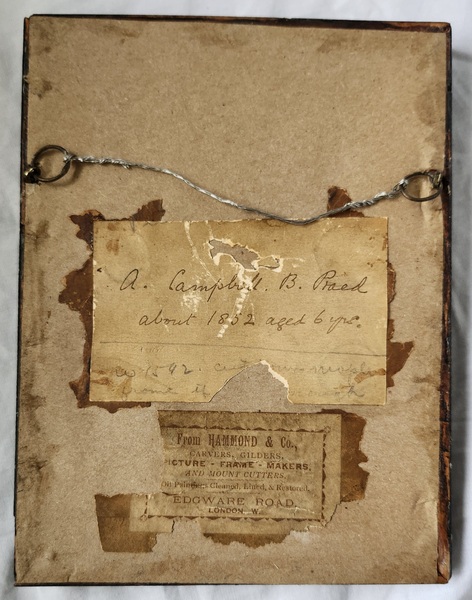 A. Campbell. B. Praed
about 1852 aged 6 yrs.
From HAMMOND & Co.,
CARVERS, GILDERS,
PICTURE - FRAME - MAKERS,
AND MOUNT CUTTERS,
Oil Paintings Cleaned, Lined, & Restored,
EDGWARE ROAD,
LONDON, W.